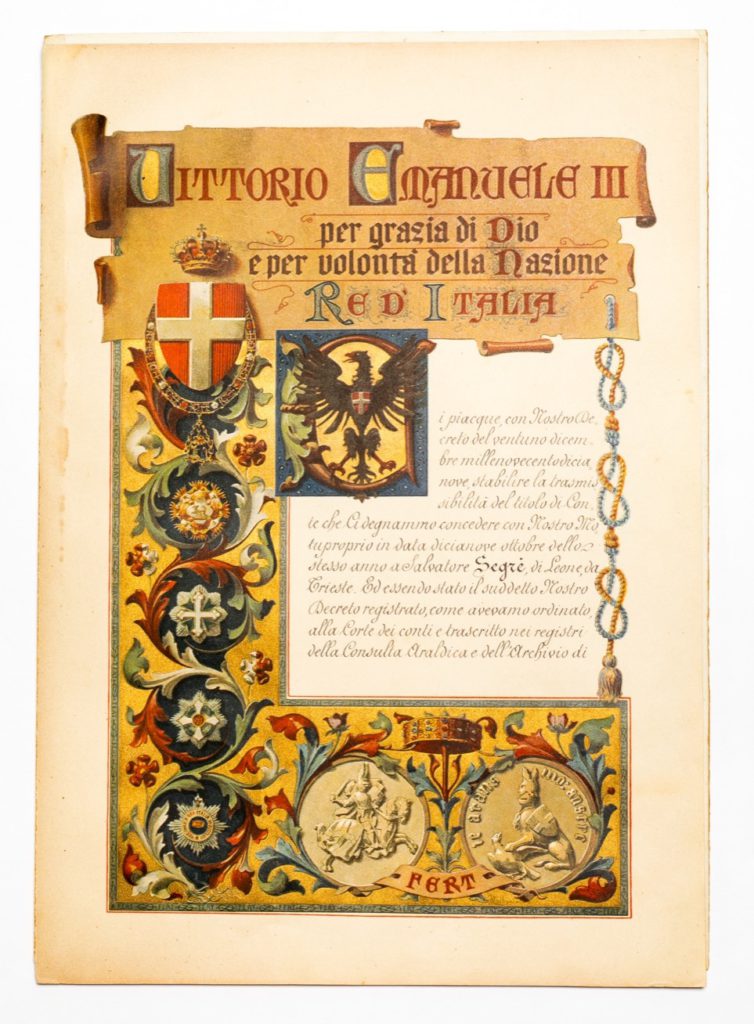 VITTORIO EMANUELE III
per grazia di Dio
e per volontà della Nazione
RE D' ITALIA
Ci piacque, con Nostro De-
creto del ventuno dicem-
bre millenovecentodicia
nove, stabilire la trasmis
sibilità del titolo di Con-
te che Ci degnammo concedere con Nostro Mo
tuproprio in data dicianove ottobre dello
stesso anno a Salvatore Segrè, di Leone, da
Trieste. Ed essendo stato il suddetto Nostro
Decreto registrato, come avevamo ordinato,
alla Corte dei conti e trascritto nei registri
della Consulta Araldica e dell'Archivio di
FERT